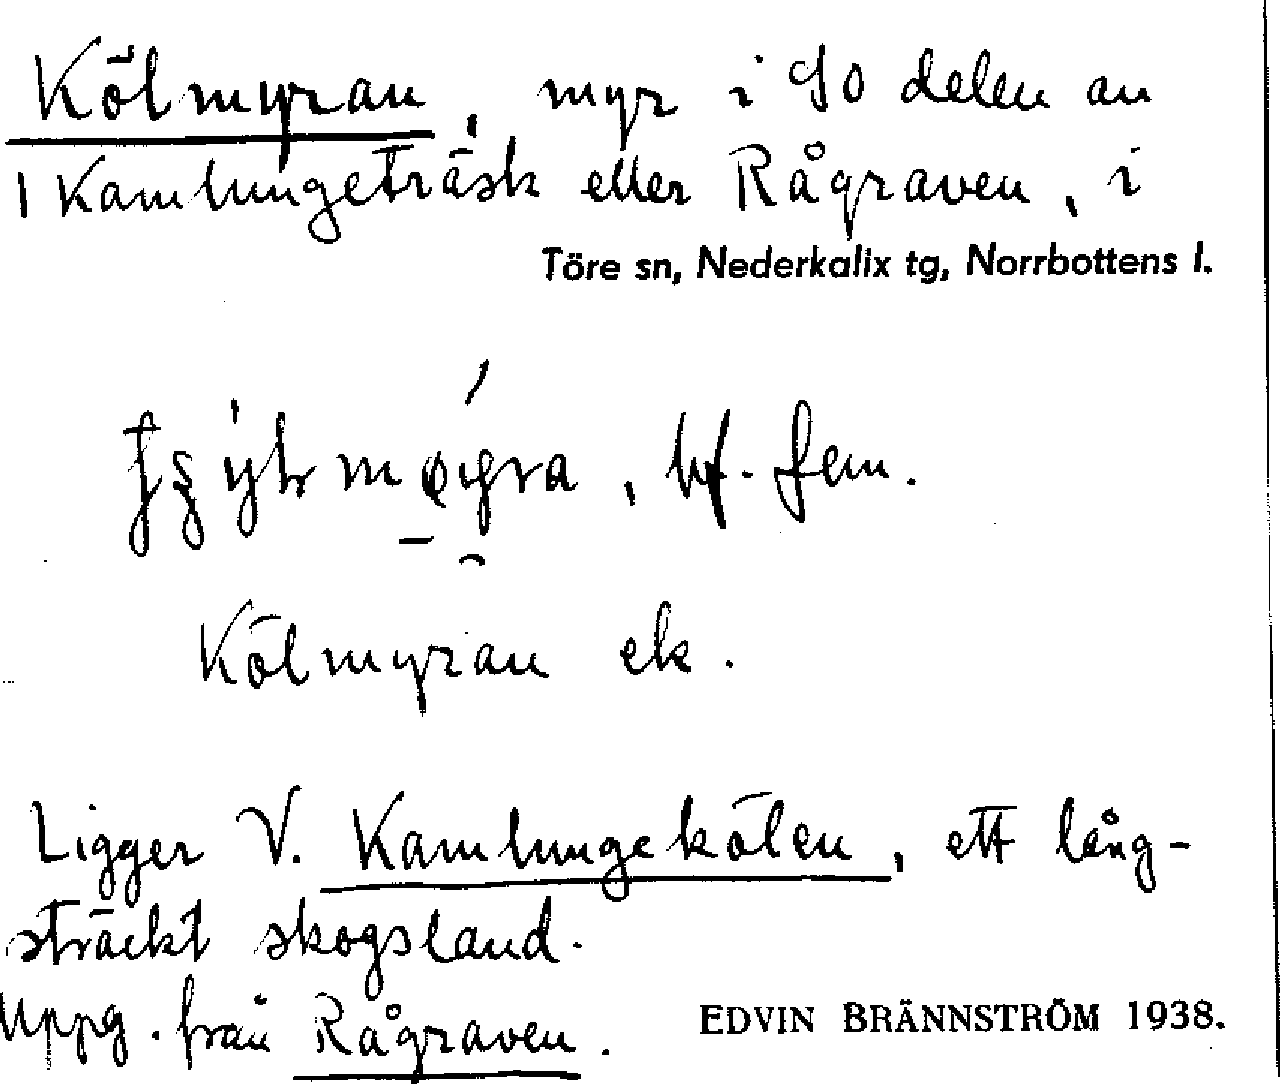 Kölmyran, myr i So delen av
Kamlungeträsk eller Rågraven, i
Töre sn, Nederkalix tg, Norrbottens l.
bf. fem.
Kölmyran ek.
Ligger V. Kamlungekölen, ett lång-
sträckt skogsland.
Uppg. från Rågraven.
EDVIN BRÄNNSTRÖM 1938.